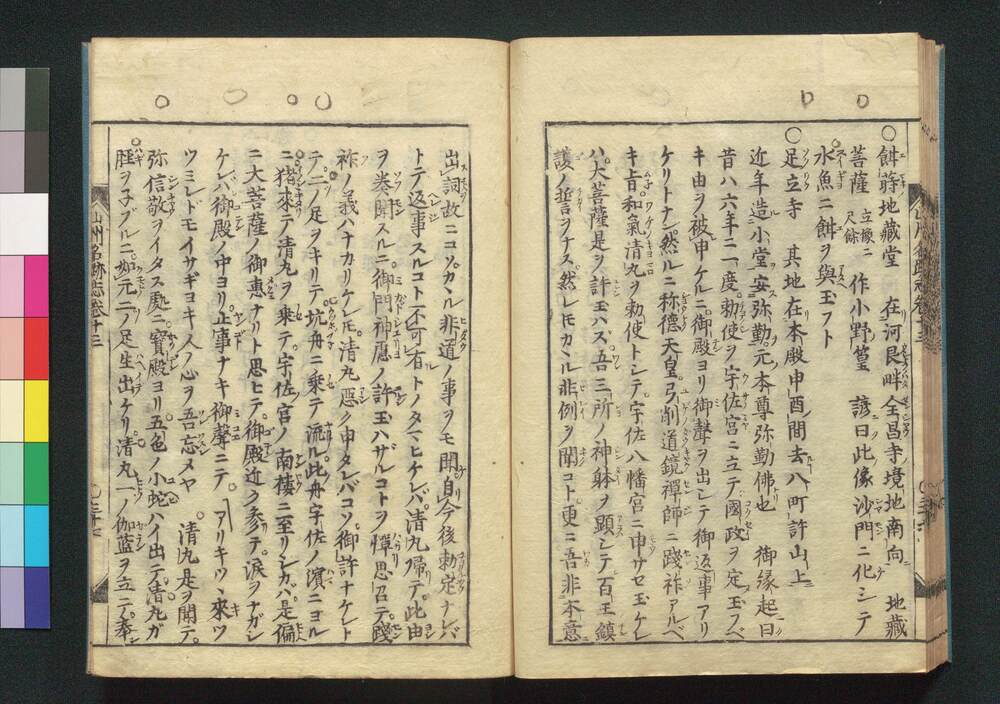 ○餌蒔地藏堂 在河艮畔全昌寺境地南向 地藏
菩薩 立像二尺餘 作小野篁 諺曰此像沙門ニ化シテ
水魚ニ餌ヲ與玉フト
○足立寺 其地在本殿申酉間去八町許山上
近年造小堂安弥勒元本尊弥勒佛也 御縁起曰
昔ハ六年ニ一度勅使ヲ宇佐宮ニ立テ國政ヲ定玉フベ
キ由ヲ被申ケルニ御殿ヨリ御聲ヲ出シテ御返事アリ
ケリトナン然ルニ称德天皇弓削道鏡禪師ニ踐祚アルベ
キ旨和氣清丸ヲ勅使トシテ宇佐八幡宮ニ申サセ玉ケレ
ハ大菩薩是ヲ許玉ハズ吾三所ノ神躰ヲ顕シテ百王鎮
護ノ誓ヲナス然レ𪜈カヽル非例ヲ聞コト更ニ吾非本意
出詞故ニコソカヽル非道ノ事ヲモ聞自今後勅定ナレバ
トテ返事スルコト不可有トノタマヒケレバ清丸帰テ此由
ヲ奏聞スルニ御門神慮ノ許玉ハザルコトヲ憚思召テ踐
祚ノ義ハナカリケレ𪜈清丸悪ク申タレバコソ御許ナケレト
テ二ノ足ヲキリテ坑舟ニ乗テ流ル此舟宇佐ノ濱ニヨル
ニ猪來テ清丸ヲ乗テ宇佐宮ノ南樓ニ至リシカハ是偏
ニ大菩薩ノ御惠ナリト思ヒテ御殿近ク参テ涙ヲナガシ
ケレハ御殿ノ中ヨリ止事ナキ御聲ニテ アリキツヽ來ツ
ツミレドモイサギヨキ人ノ心ヲ吾忘メヤ 清丸是ヲ聞テ
弥信敬ヲイタス處ニ寶殿ヨリ五色ノ小蛇ハイ出テ清丸ガ
脛ヲ子ブルニ如元ニノ足生出ケリ清丸一ノ伽藍ヲ立テ奉
山州名跡志卷十三